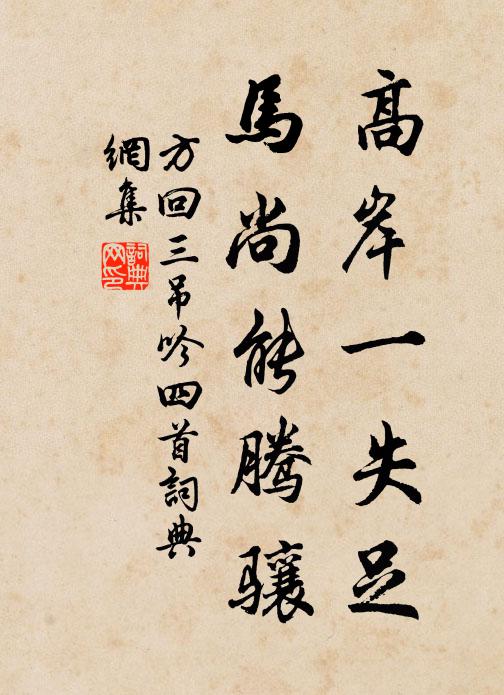 高岸一失足
馬尚能騰驤
方回三吊吟四首詞典
網集
詞典
网印